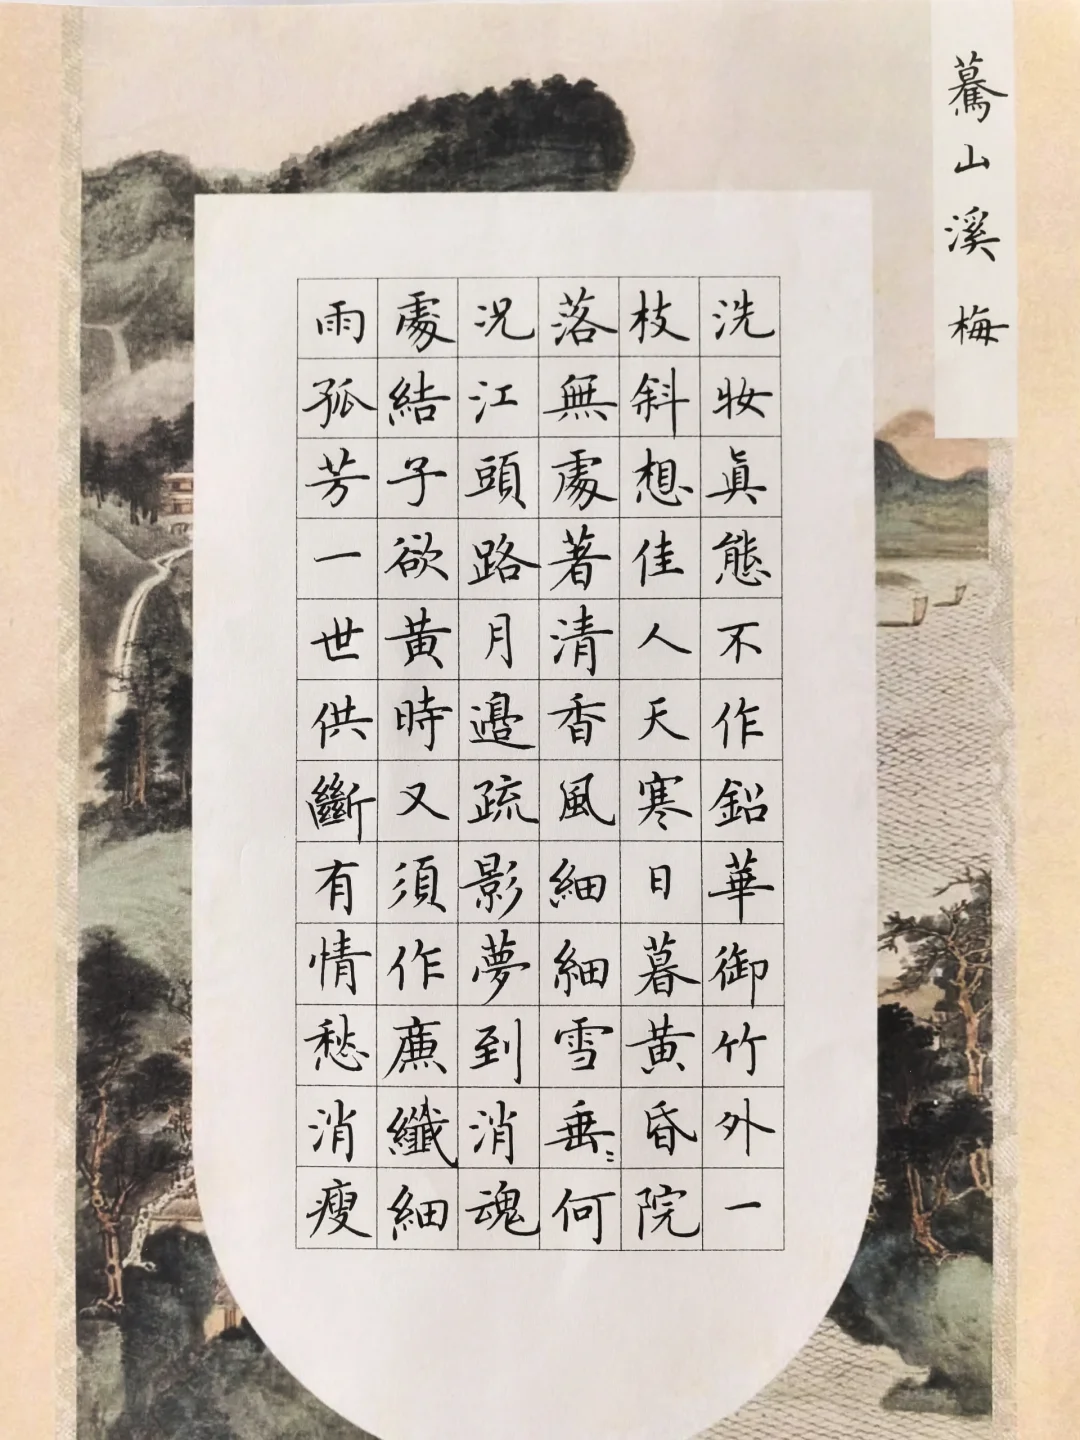 驀山溪 梅
洗妝眞態不作鉛華御竹外一
枝斜想佳人天寒日暮黃昏院
落無處著清香風細細雪垂〻何
況江頭路月邊疏影夢到消魂
處結子欲黃時又須作廉纖細
雨孤芳一世供斷有情愁消瘦